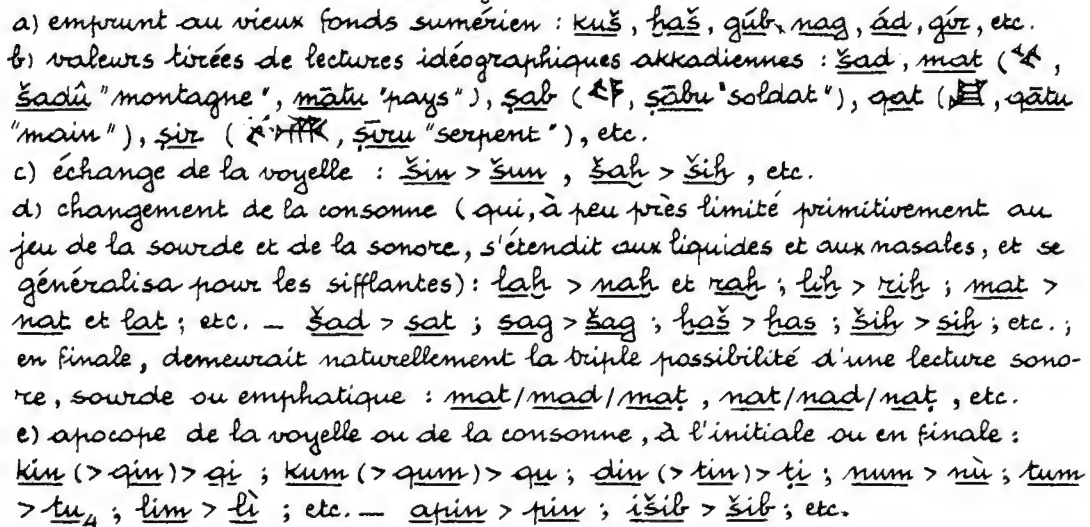 a) emprunt au vieux fonds sumérien : kuš, ḫaš, gúb, nag, ád, gír, etc.
b) valeurs tirées de lectures idéographiques akkadiennes : šad, mat (𒆳,
šadû "montagne", mātu "pays"), ṣab (𒂟, ṣābu "soldat"), qat (𒋗, qātu
"main"), ṣir (𒈲, ṣīru "serpent"), etc.
c) échange de la voyelle : šin > šun, šaḫ > šiḫ, etc.
d) changement de la consonne (qui, à peu près limité primitivement au
jeu de la sourde et de la sonore, s'étendit aux liquides et aux nasales, et se
généralisa pour les sifflantes): laḫ > naḫ et raḫ ; liḫ > riḫ ; mat >
nat et lat ; etc. — šad > sat ; sag > šag ; ḫaš > ḫas ; šiḫ > siḫ ; etc. ;
en finale, demeurait naturellement la triple possibilité d'une lecture sono-
re, sourde ou emphatique : mat/mad/maṭ, nat/nad/naṭ, etc.
e) apocope de la voyelle ou de la consonne, à l'initiale ou en finale :
kin (> qin) > qi ; kum (> qum) > qu ; din (> tin) > ṭi ; num > nù ; tum
> tu₄ ; lim > lì ; etc. — apin > pin ; išib > šib ; etc.